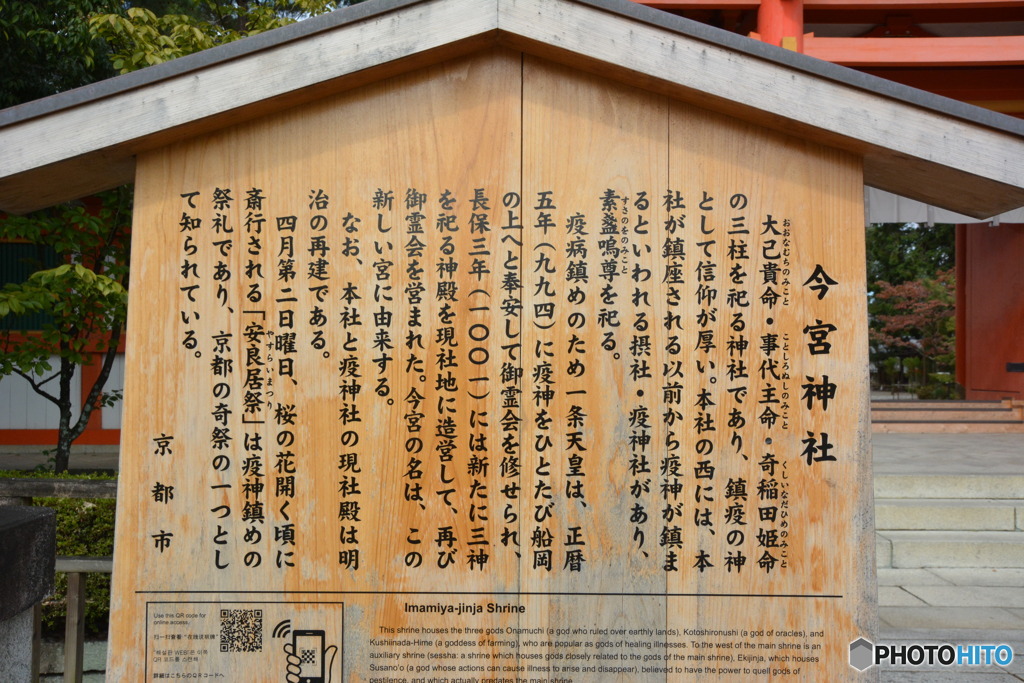 今宮神社
大己貴命・事代主命・奇稲田姫命
おおなむちのみこと
ことしろぬしのみこと
くしいなだひめのみこと
の三柱を祀る神社であり、鎮疫の神
として信仰が厚い。本社の西には、本
社が鎮座される以前から疫神が鎮ま
るといわれる摂社・疫神社があり、
素盞嗚尊を祀る。
すさのをのみこと
疫病鎮めのため一条天皇は、正暦
五年（九九四）に疫神をひとたび船岡
の上へと奉安して御霊会を修せられ、
長保三年（一〇〇一）には新たに三神
を祀る神殿を現社地に造営して、再び
御霊会を営まれた。今宮の名は、この
新しい宮に由来する。
なお、本社と疫神社の現社殿は明
治の再建である。
四月第二日曜日、桜の花開く頃に
斎行される「安良居祭」は疫神鎮めの
やすらいまつり
祭礼であり、京都の奇祭の一つとし
て知られている。
京都市
Use this QR code for
online access.
扫一扫看看"在线说明牌"
"해설판 WEB"은 이쪽
QR 코드를 스캔해
詳細はこちらのQRコードへ
Imamiya-jinja Shrine
This shrine houses the three gods Onamuchi (a god who ruled over earthly lands), Kotoshironushi (a god of oracles), and
Kushiinada-Hime (a goddess of farming), who are popular as gods of healing illnesses. To the west of the main shrine is an
auxiliary shrine (sessha: a shrine which houses gods closely related to the gods of the main shrine), Ekijinja, which houses
Susano'o (a god whose actions can cause illness to arise and disappear), believed to have the power to quell gods of
pestilence, and which actually predates the main shrine.
PHOTOHITO